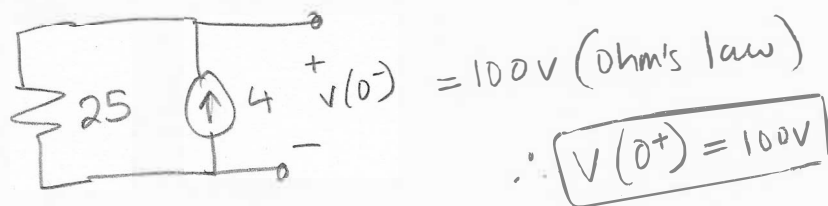 25
4
+
v(0⁻)
-
= 100V (Ohm's law)
∴ V(0⁺) = 100V